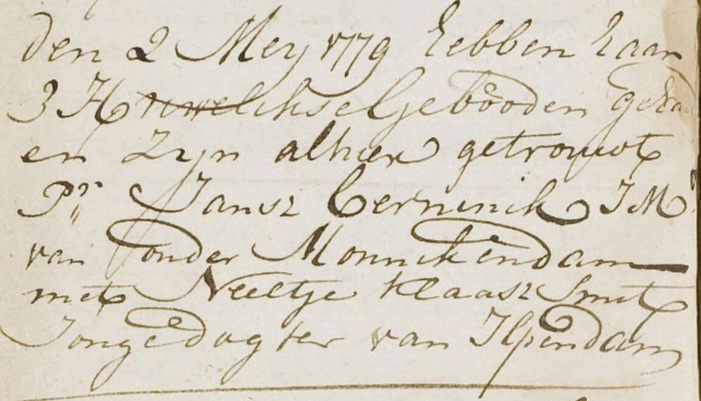 den 2 Mey 1779 hebben haar
3 Huwelickse Gebooden gehad
en zyn alhier getrouwt
Pr Jansz Cerninck JM
van onder Monnickendam
met Neeltje Klaasz Smit
Jongedogter van Ilpendam